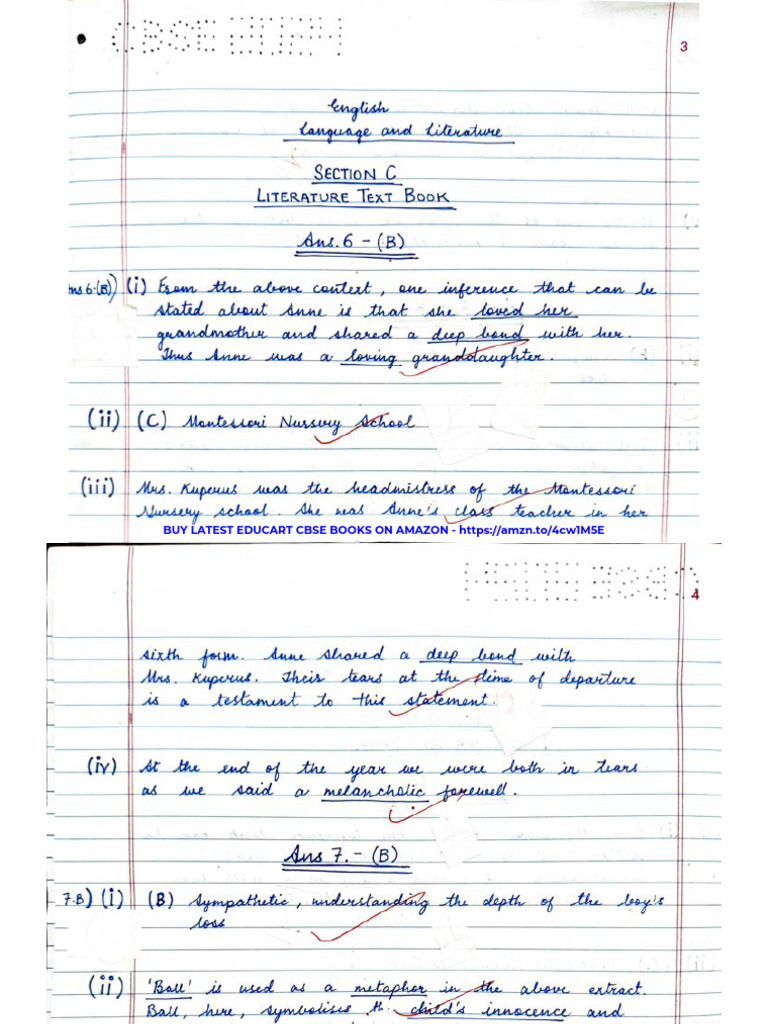 CBSE
3
English
Language and Literature
SECTION C
LITERATURE TEXT BOOK
Ans.6 - (B)
Ans 6-(B)) (i) From the above context, one inference that can be
stated about Anne is that she loved her
grandmother and shared a deep bond with her.
Thus Anne was a loving granddaughter.
(ii) (C) Montessori Nursery School
(iii) Mrs. Kuperus was the headmistress of the Montessori
Nursery school. She was Anne's class teacher in her
BUY LATEST EDUCART CBSE BOOKS ON AMAZON - https://amzn.to/4cw1M5E
4
sixth form. Anne shared a deep bond with
Mrs. Kuperus. Their tears at the time of departure
is a testament to this statement.
(iv) At the end of the year we were both in tears
as we said a melancholic farewell.
Ans 7. - (B)
7.B) (i) (B) Sympathetic, understanding the depth of the boy's
loss
(ii) 'Ball' is used as a metaphor in the above extract.
Ball, here, symbolises the child's innocence and